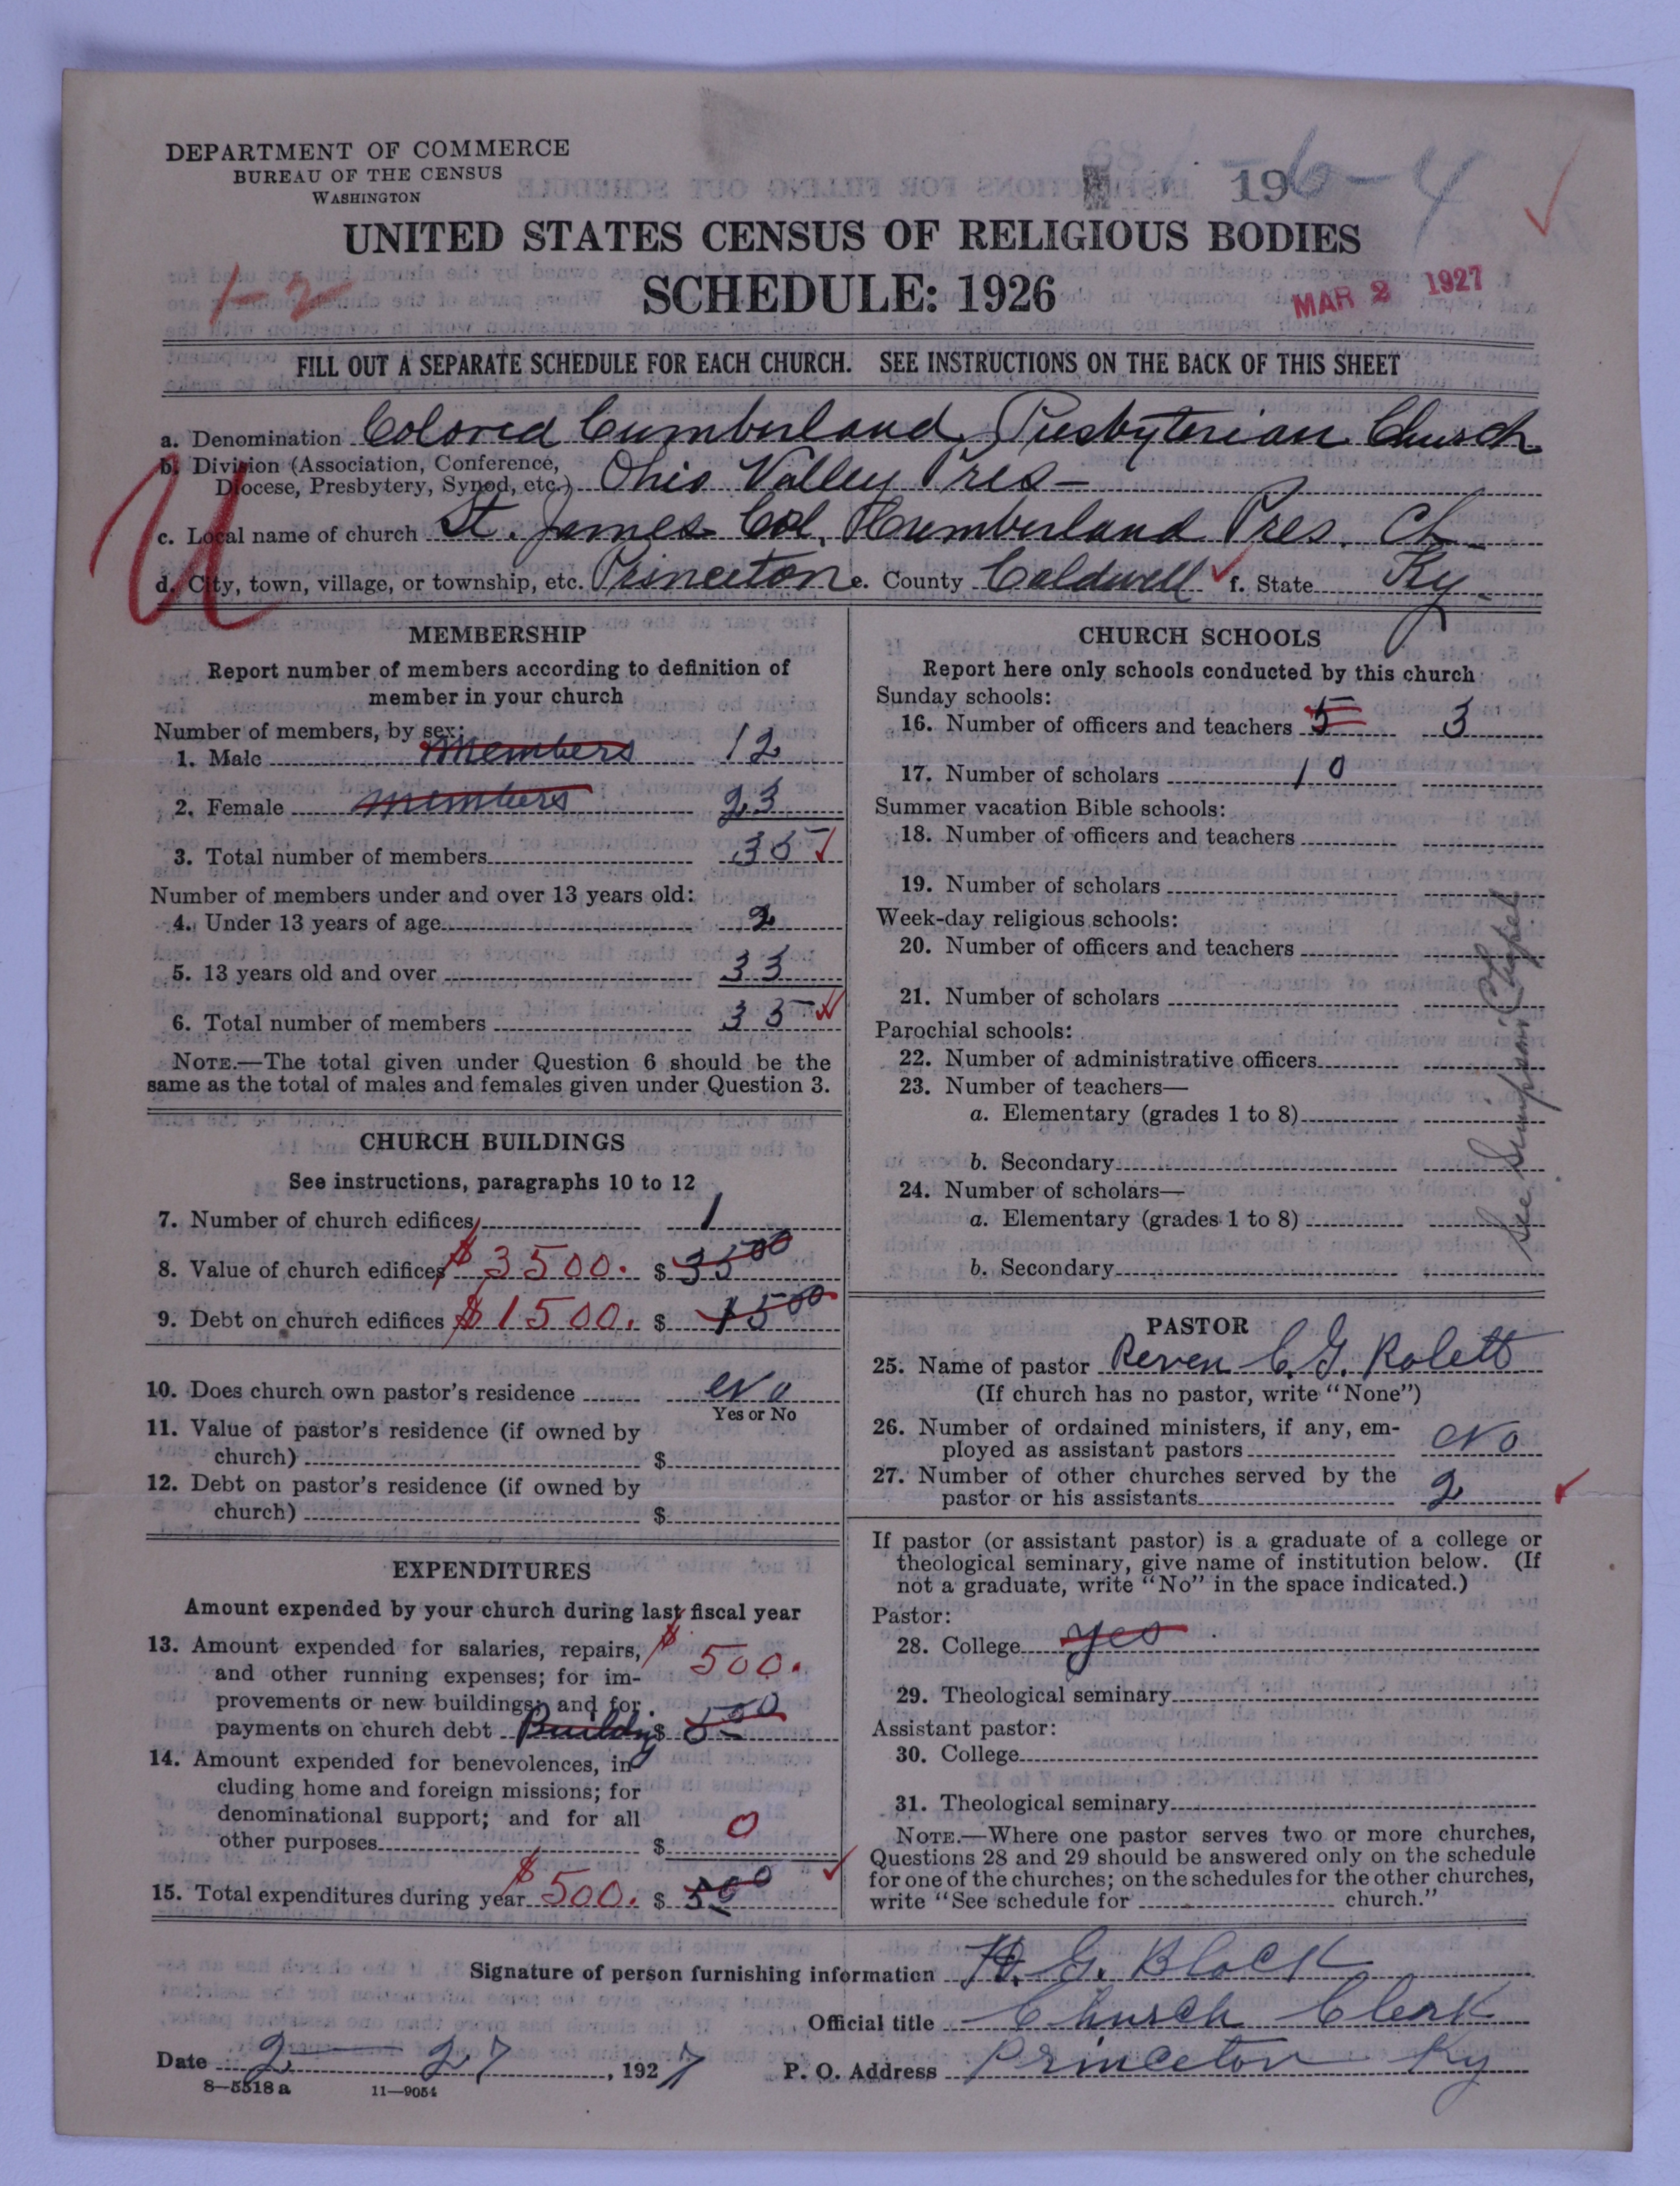 DEPARTMENT OF COMMERCE
BUREAU OF THE CENSUS
WASHINGTON
196-4
UNITED STATES CENSUS OF RELIGIOUS BODIES
1-2
SCHEDULE: 1926
MAR 2 1927
FILL OUT A SEPARATE SCHEDULE FOR EACH CHURCH. SEE INSTRUCTIONS ON THE BACK OF THIS SHEET
a. Denomination Colored Cumberland Presbyterian Church
b. Division (Association, Conference, Diocese, Presbytery, Synod, etc.) Ohio Valley Pres-
c. Local name of church St. James Col. Cumberland Pres. Ch
d. City, town, village, or township, etc. Princeton e. County Caldwell f. State Ky.
U
MEMBERSHIP
Report number of members according to definition of
member in your church
Number of members, by sex:
1. Male members 12
2. Female members 23
3. Total number of members 35
Number of members under and over 13 years old:
4. Under 13 years of age 2
5. 13 years old and over 33
6. Total number of members 35
NOTE.—The total given under Question 6 should be the
same as the total of males and females given under Question 3.
CHURCH BUILDINGS
See instructions, paragraphs 10 to 12
7. Number of church edifices 1
8. Value of church edifices $3500. $3500
9. Debt on church edifices $1500. $1500
10. Does church own pastor's residence No
Yes or No
11. Value of pastor's residence (if owned by
church) $
12. Debt on pastor's residence (if owned by
church) $
EXPENDITURES
Amount expended by your church during last fiscal year
13. Amount expended for salaries, repairs, $500.
and other running expenses; for im-
provements or new buildings; and for
payments on church debt $500
14. Amount expended for benevolences, in-
cluding home and foreign missions; for
denominational support; and for all
other purposes $ 0
15. Total expenditures during year $500. $500
CHURCH SCHOOLS
Report here only schools conducted by this church
Sunday schools:
16. Number of officers and teachers 5 3
17. Number of scholars 10
Summer vacation Bible schools:
18. Number of officers and teachers
19. Number of scholars
Week-day religious schools:
20. Number of officers and teachers
21. Number of scholars
Parochial schools:
22. Number of administrative officers
23. Number of teachers—
a. Elementary (grades 1 to 8)
b. Secondary
24. Number of scholars—
a. Elementary (grades 1 to 8)
b. Secondary
See Simpson Chapel
PASTOR
25. Name of pastor Reven C. G.
(If church has no pastor, write "None")
26. Number of ordained ministers, if any, em-
ployed as assistant pastors No
27. Number of other churches served by the
pastor or his assistants 2
If pastor (or assistant pastor) is a graduate of a college or
theological seminary, give name of institution below. (If
not a graduate, write "No" in the space indicated.)
Pastor:
28. College yes
29. Theological seminary
Assistant pastor:
30. College
31. Theological seminary
NOTE.—Where one pastor serves two or more churches,
Questions 28 and 29 should be answered only on the schedule
for one of the churches; on the schedules for the other churches,
write "See schedule for church."
Signature of person furnishing information H. G. Black
Official title Church Clerk
Date 2 — 27, 1927 P. O. Address Princeton Ky
8-5518 a 11—9054